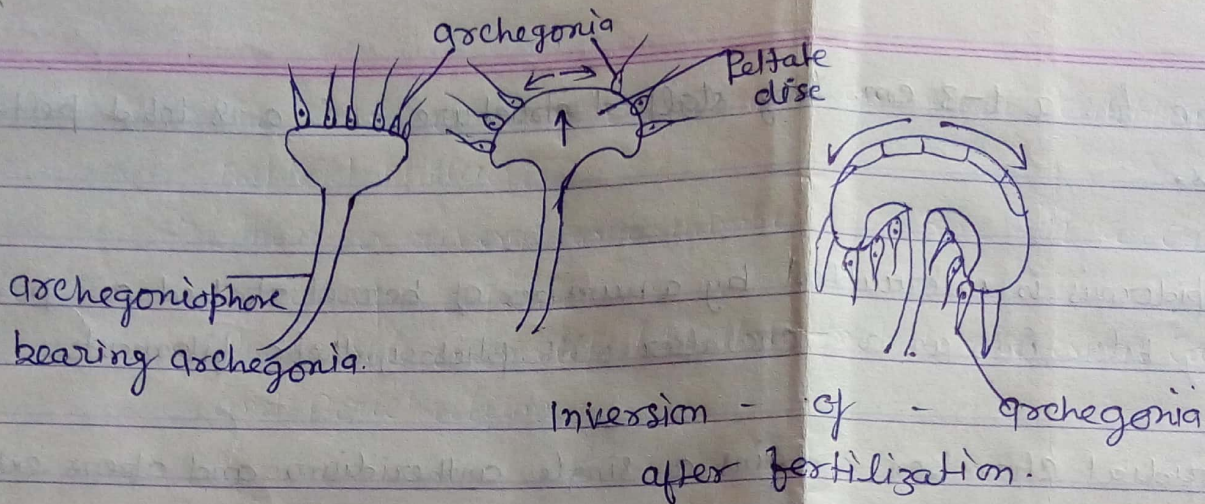 archegonia
Peltate
disc
archegoniophore
bearing archegonia.
Inversion - of - archegonia
after fertilization.